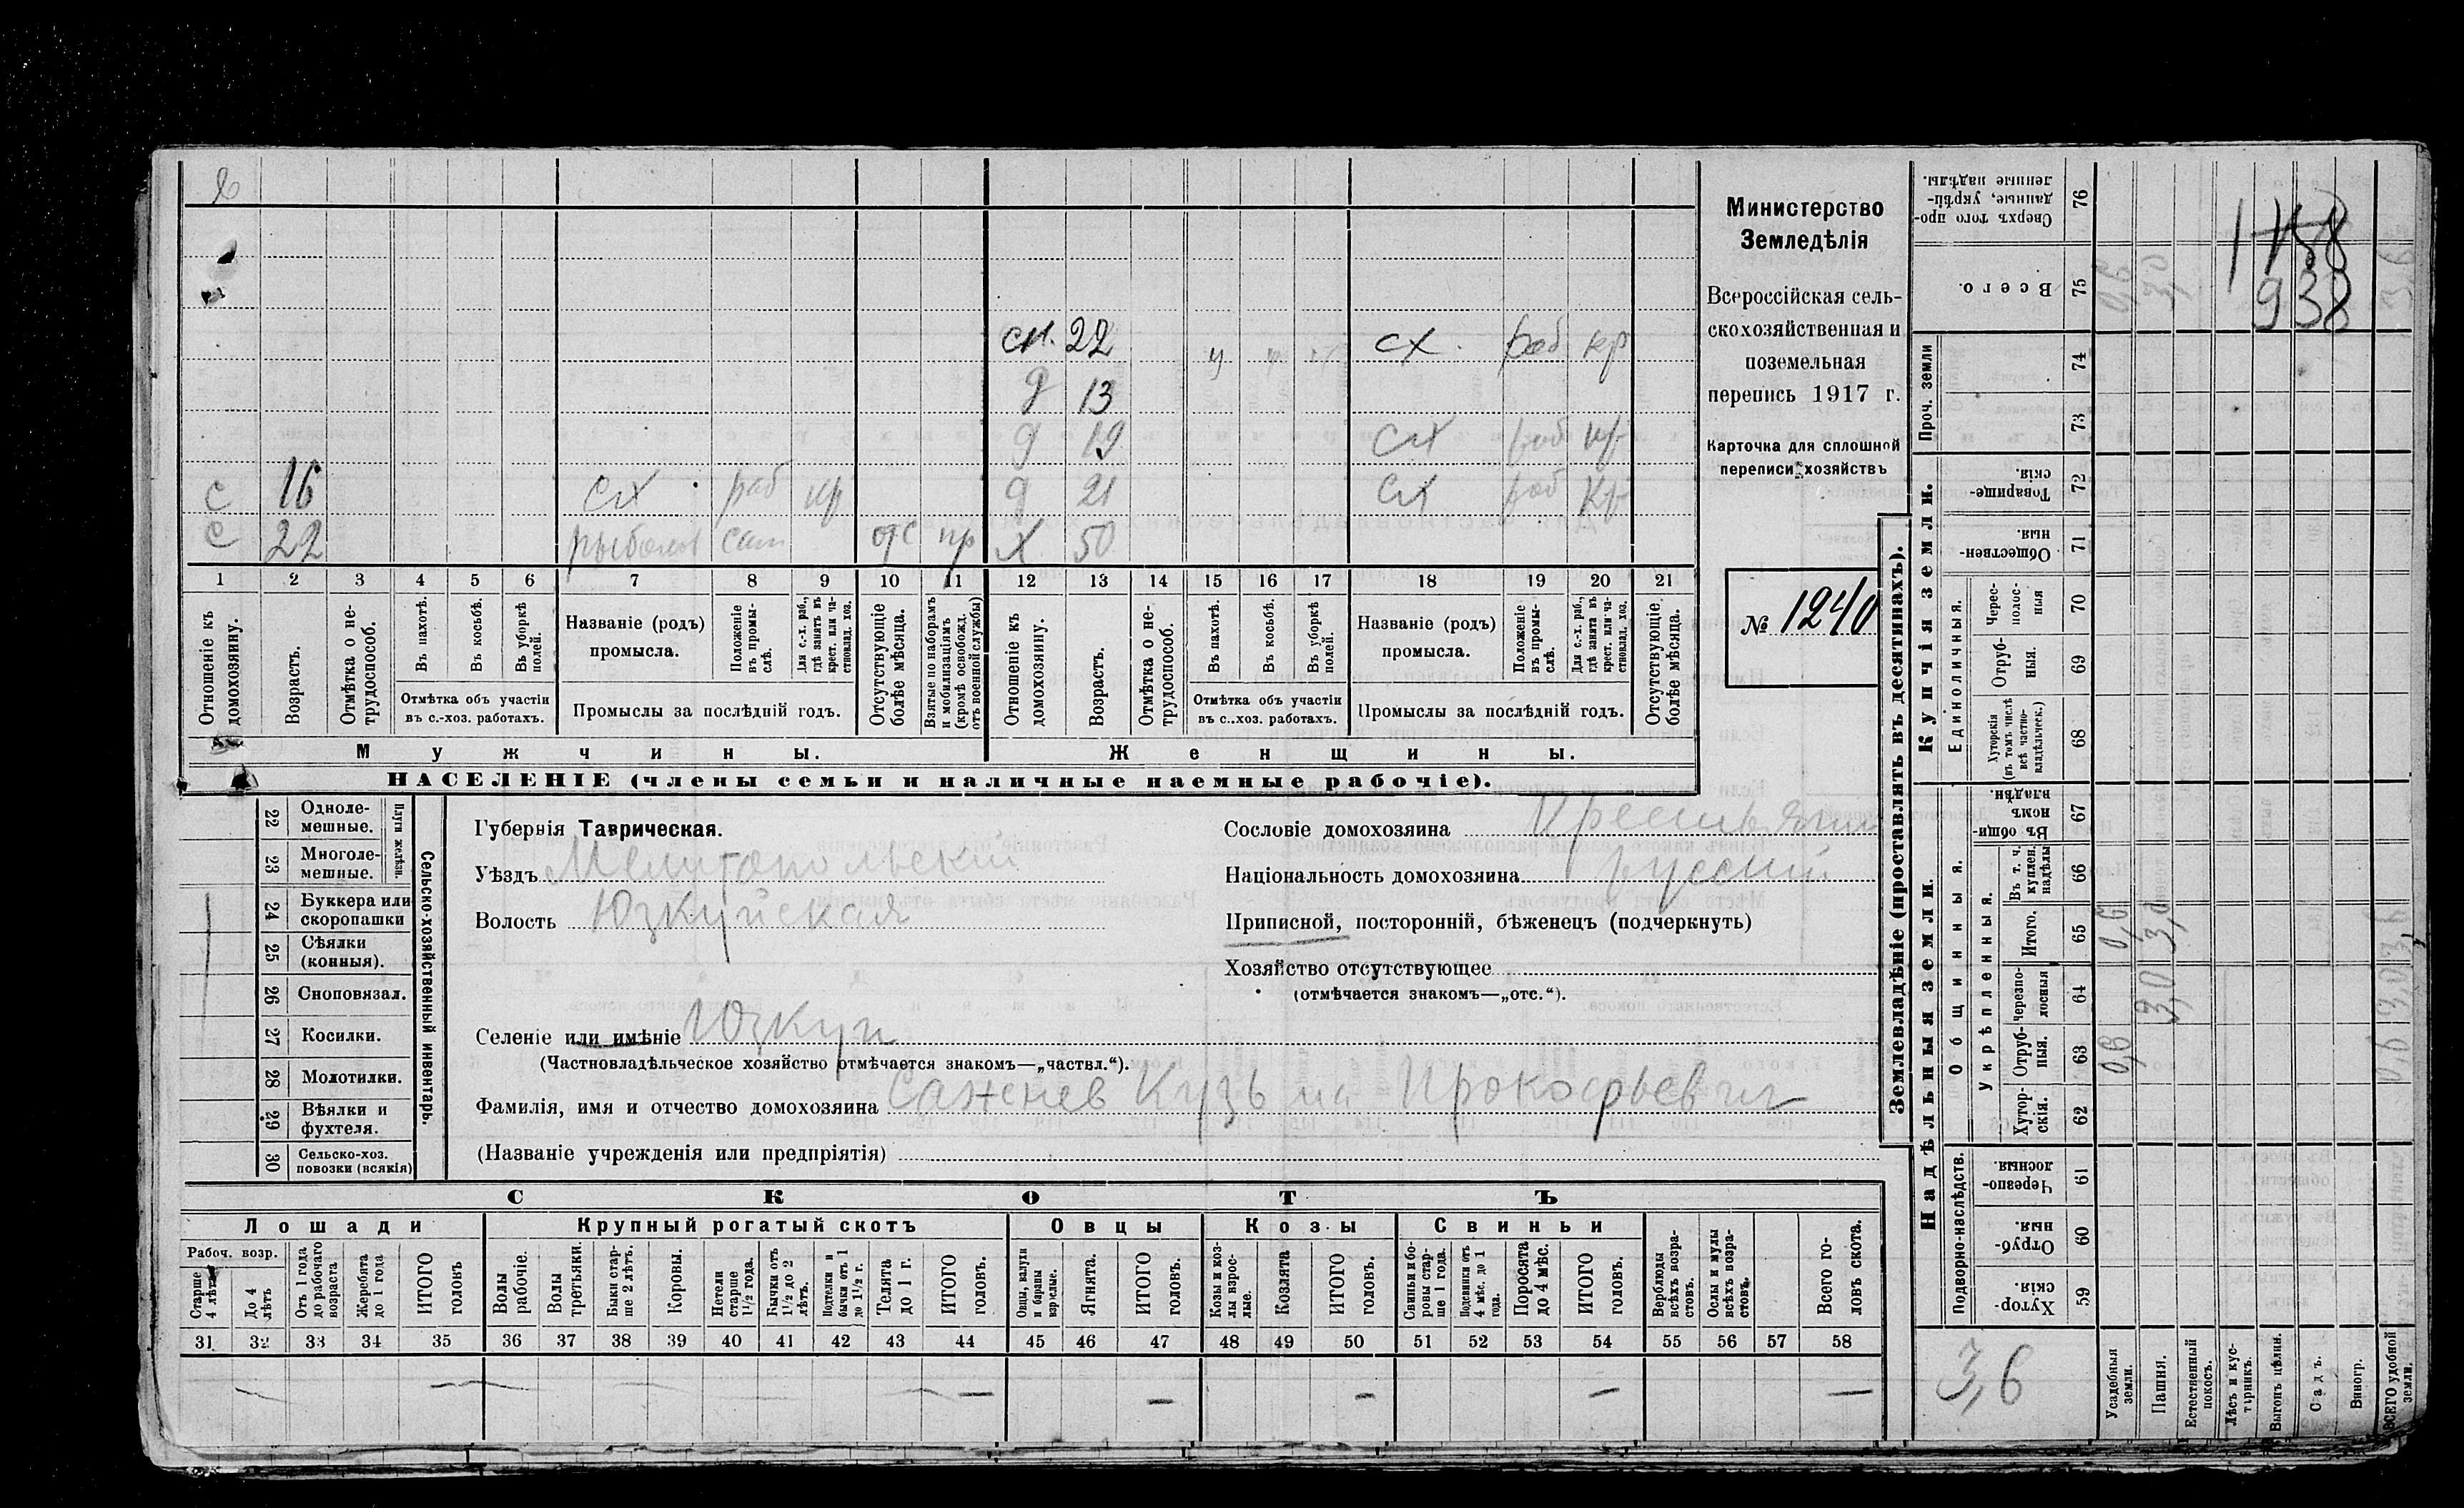 1758
938
сн. 22 сх. раб кр
д 13
д 19 сх раб кр
с 16 сх раб кр д 21 сх раб кр
с 22 рыболов сам отс пр х 50
1 2 3 4 5 6 7 8 9 10 11 12 13 14 15 16 17 18 19 20 21
Отношеніе къ домохозяину.
Возрастъ.
Отмѣтка о не-трудоспособ.
Въ пахотѣ.
Въ косьбѣ.
Въ уборкѣ полей.
Отмѣтка объ участіи
въ с.-хоз. работахъ.
Названіе (родъ)
промысла.
Положеніе въ промы-слѣ.
Для с.-х. раб., гдѣ занятъ въ крест. или ча-стновлад. хоз.
Промыслы за послѣдній годъ.
Отсутствующіе болѣе мѣсяца.
Взятые по наборамъ и мобилизаціямъ (кромѣ освобожд. отъ военной службы)
Отношеніе къ домохозяину.
Возрастъ.
Отмѣтка о не-трудоспособ.
Въ пахотѣ.
Въ косьбѣ.
Въ уборкѣ полей.
Отмѣтка объ участіи
въ с..хоз. работахъ.
Названіе (родъ)
промысла.
Положеніе въ промы-слѣ.
Для с.-х. раб., гдѣ занята въ крест. или ча-стновлад. хоз.
Промыслы за послѣдній годъ.
Отсутствующіе болѣе мѣсяца.
Мужчины. Женщины.
НАСЕЛЕНІЕ (члены семьи и наличные наемные рабочіе).
Министерство
Земледѣлія
Всероссійская сель-
скохозяйственная и
поземельная
перепись 1917 г.
Карточка для сплошной
переписи хозяйствъ
№ 1240
Сельско-хозяйственный инвентарь.
Плуги желѣзн.
22 Одноле-мешные.
23 Многоле-мешные.
24 Буккера или скоропашки
25 Сѣялки (конныя).
26 Сноповязал.
27 Косилки.
28 Молотилки.
29 Вѣялки и фухтеля.
30 Сельско-хоз. повозки (всякія)
Губернія Таврическая.
Уѣздъ Мелитопольскій
Волость Юзкуйская
Селеніе или имѣніе Юзкуи
(Частновладѣльческое хозяйство отмѣчается знакомъ—„частвл.“).
Фамилія, имя и отчество домохозяина Саженев Кузьма Прокофьевич
(Названіе учрежденія или предпріятія)
Сословіе домохозяина Крестьянин
Національность домохозяина русский
Приписной, посторонній, бѣженецъ (подчеркнуть)
Хозяйство отсутствующее
(отмѣчается знакомъ—„отс.“).
СКОТЪ
Лошади Крупный рогатый скотъ Овцы Козы Свиньи
Рабоч. возр.
Старше 4 лѣтъ
До 4 лѣтъ
Отъ 1 года до рабочаго возраста
Жеребята до 1 года
ИТОГО головъ
Волы рабочіе.
Волы третьяки.
Быки стар-ше 2 лѣтъ.
Коровы.
Нетели старше 1½ года.
Бычки отъ 1½ до 2 лѣтъ.
Подтелки и бычки отъ 1 до 1½ г.
Телята до 1 г.
ИТОГО головъ.
Овцы, валухи и бараны взрослые.
Ягнята.
ИТОГО головъ.
Козы и коз-лы взрос-лые.
Козлята
ИТОГО головъ.
Свиньи и бо-ровы стар-ше 1 года.
Подсвинки отъ 4 мѣс. до 1 года.
Поросята до 4 мѣс.
ИТОГО головъ.
Верблюды всѣхъ возра-стовъ.
Ослы и мулы всѣхъ возра-стовъ.
Всего го-ловъ скота.
31 32 33 34 35 36 37 38 39 40 41 42 43 44 45 46 47 48 49 50 51 52 53 54 55 56 57 58
— — — — — —
Землевладѣніе (проставлять въ десятинахъ).
Купчія земли.
Надѣльныя земли.
Сверхъ того про-данные, укрѣп-ленные надѣлы. 76
Всего. 75 0,6 3,0 3,6
Проч. земли 74
73
Товарище-скія. 72
Обществен-ныя. 71
Единоличныя.
Черес-полос-ныя 70
Отруб-ныя. 69
Хуторскія (въ томъ числѣ всѣ частно-владѣльческ.) 68
Общинныя.
Въ общин-номъ владѣн. 67
Укрѣпленныя.
Въ т. ч. куплен. надѣлы 66
Итого. 65 0,6 3,0 3,6
Черезпо-лосныя 64 3,0 3,0
Отруб-ныя. 63 0,6 0,6
Хутор-скія. 62
Подворно-наслѣдств.
Черезпо-лосныя. 61
Отруб-ныя. 60
Хутор-скія. 59
3,6
Усадебныя земли.
Пашня.
Естественный покосъ.
Лѣсъ и кус-тарникъ.
Выгонъ цѣлин.
Садъ.
Виногр.
ВСЕГО удобной земли.